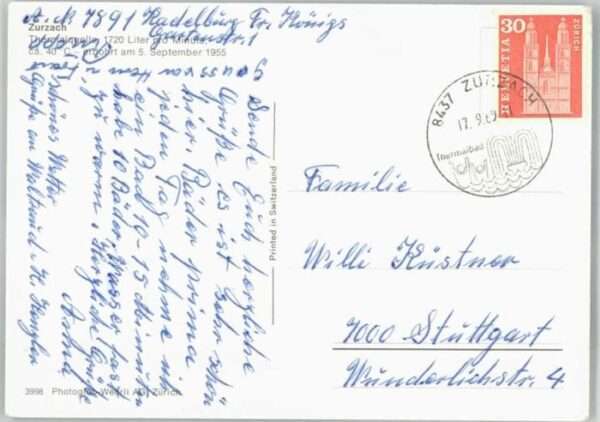 A. N. 7891 Kadelburg Fr. Königs
Gartenstr. 1
Zurzach
Thermalquelle, 1720 Liter pro Minute,
ca. 40° C, erbohrt am 5. September 1955
Sende Euch herzliche
Grüße es ist sehr schön
hier, Bäder prima
jeden Tag nehme ich
ein Bad 10-15 Minuten
habe 10 Bäder, Wasser fast
zu warm. Herzliche Grüße
Schönes Wetter
Grüße an
Printed in Switzerland
3998 Photoglob-Wehrli AG, Zürich
30
HELVETIA
ZÜRICH
8437 ZURZACH
17.9.69
Thermalbad
Familie
Willi Küstner
7000 Stuttgart
Wunderlichstr. 4